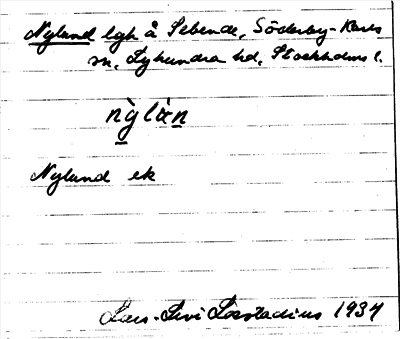 Nylund lgh å Sebende, Söderby-Karls
sn, Lyhundra hd, Stockholms l.
nỳlàn
Nylund ek
Lars-Levi Læstadius 1934